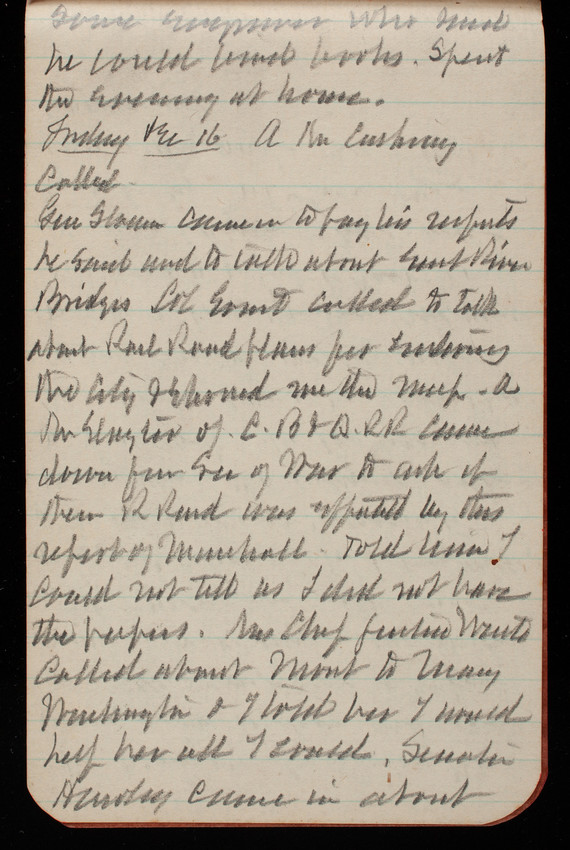 Some engraver who said
he could bind books. Spent
the evening at home.
Friday Dec 16 A Mr Cushing
Called.
Gen Slocum came in to pay his respects
he said and to talk about East River
Bridges Col called to talk
about Rail Road plans for entering
the City & Showed me the map. A
Mr of C. B & Q. RR came
down from Sec of War to ask if
their R Road was affected by the
report of Marshall. Told him I
could not tell as I did not have
the papers. Mrs Chf Justice Waite
Called about Mont to Mary
Washington & I told her I would
help her all I could. Senator
Hawley came in about